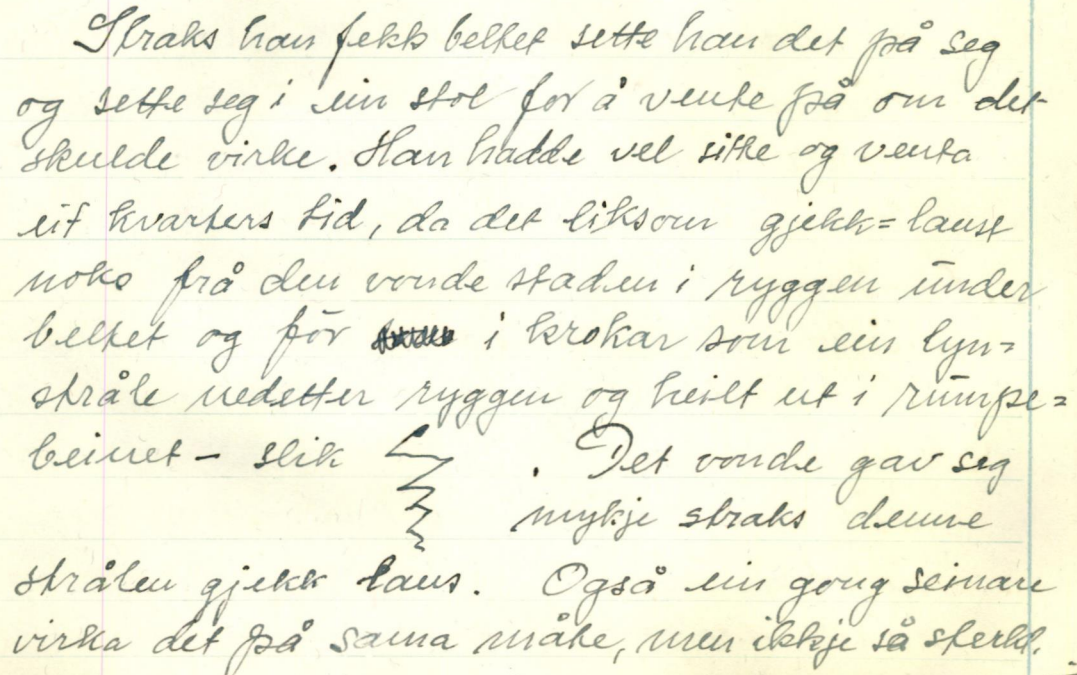 Straks han fekk beltet sette han det på seg
og sette seg i ein stol for å vente på om det
skulde virke. Han hadde vel sitte og venta
eit kvarters tid, da det liksom gjekk=laust
noko frå den vonde staden i ryggen under
beltet og fór i krokar som ein lyn=
stråle nedetter ryggen og heilt ut i rumpe=
beinet – slik . Det vonde gav seg
mykje straks denne
strålen gjekk laus. Også ein gong seinare
virka det på sama måte, men ikkje så sterkt.